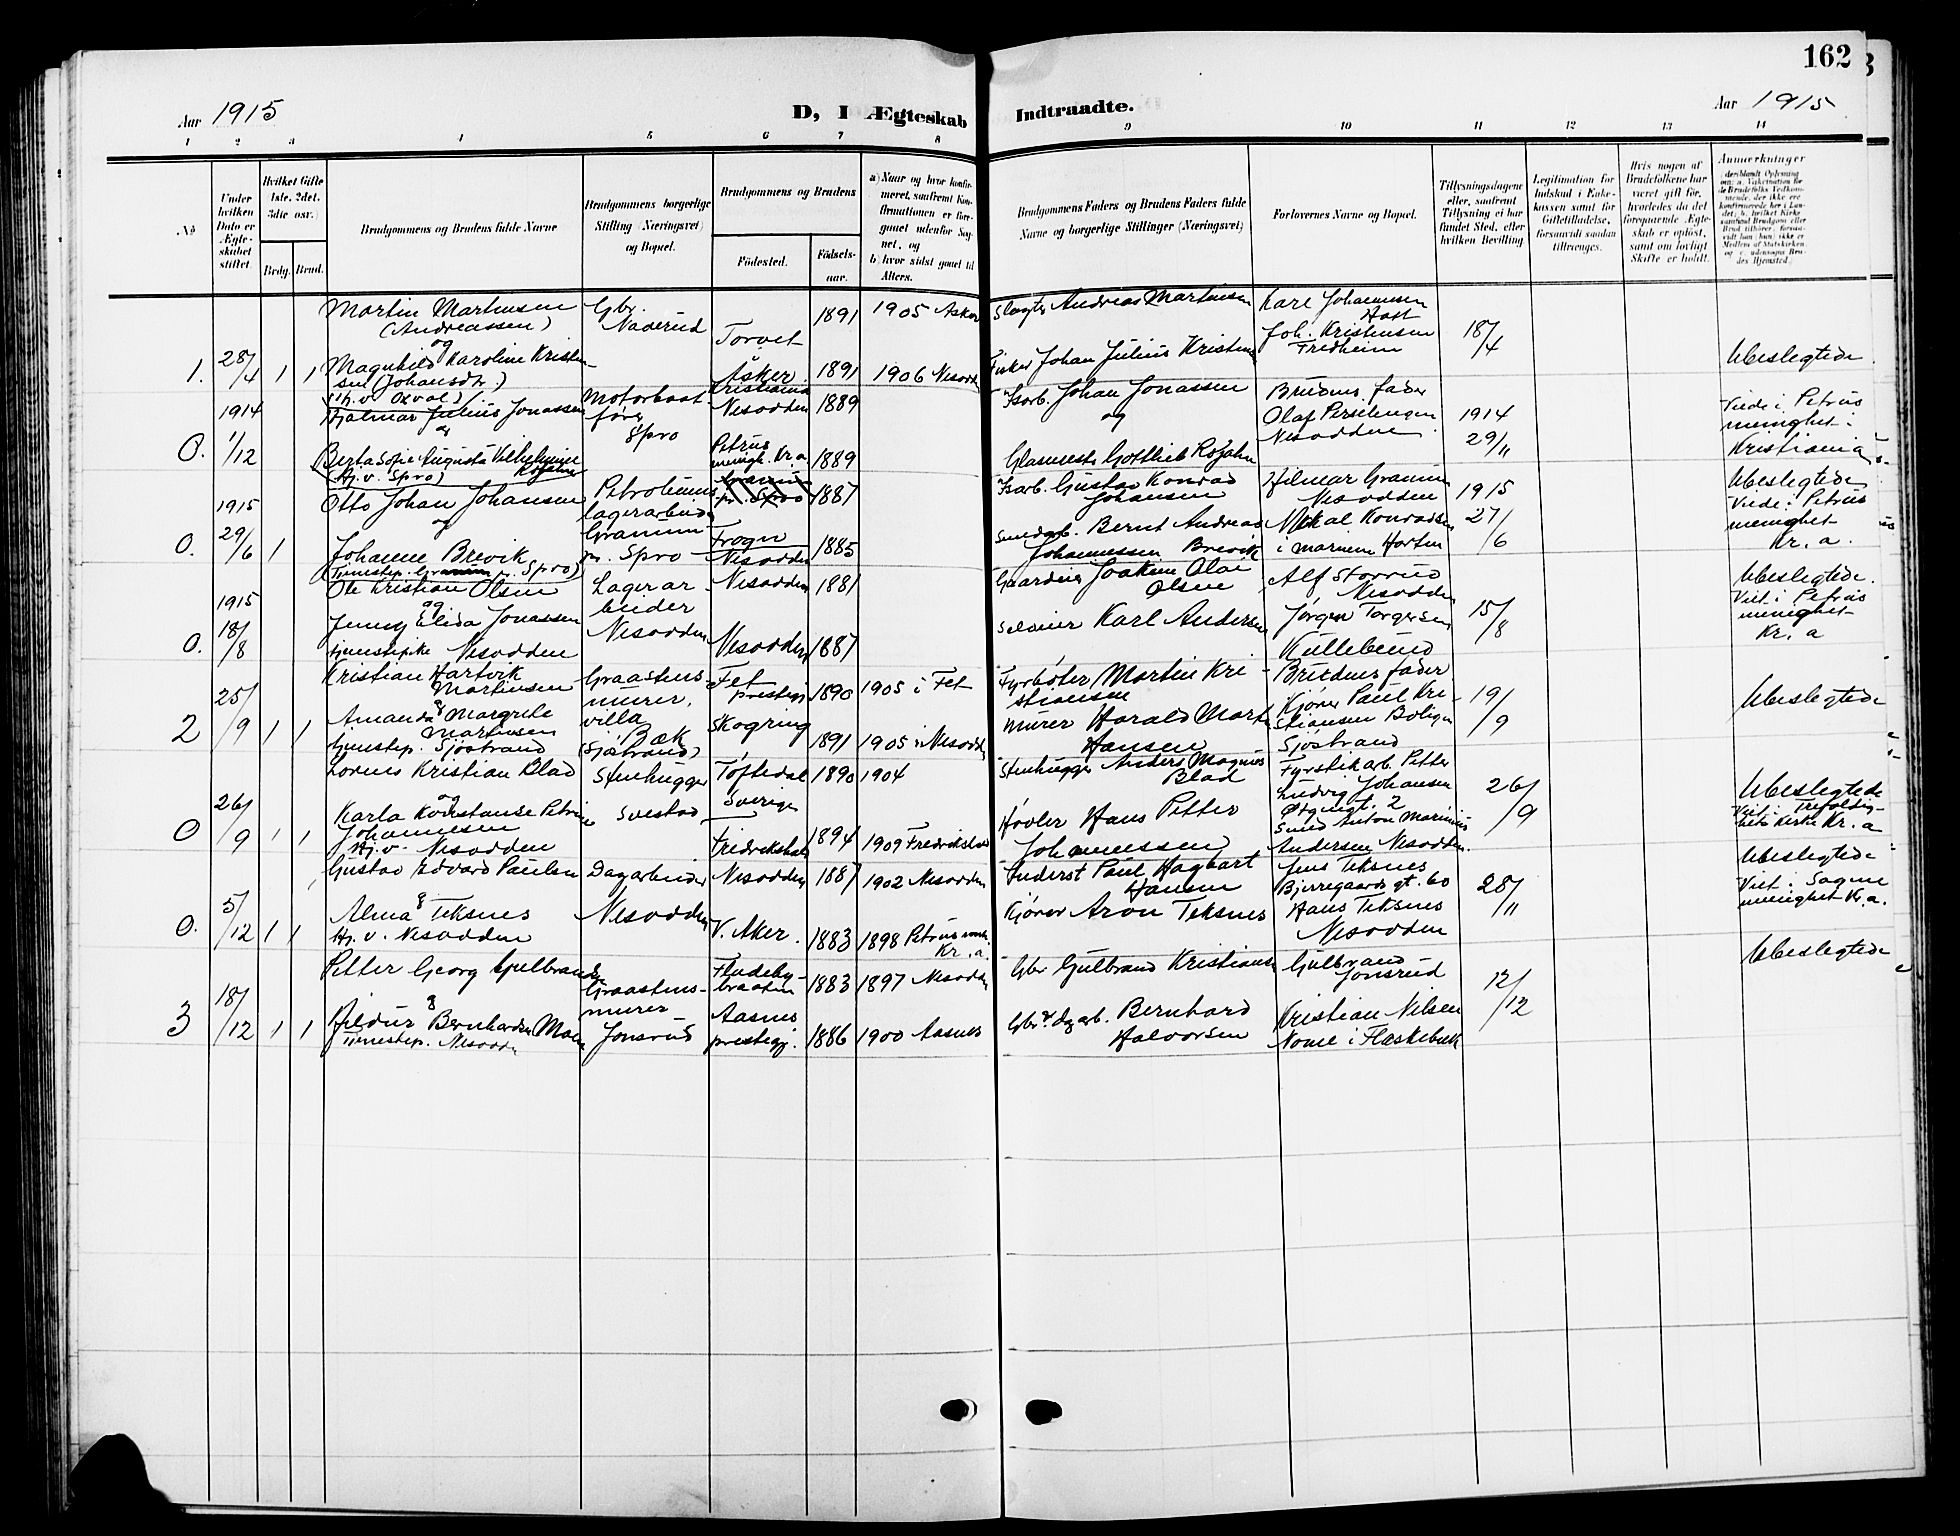 162
Aar 1915
D, I Ægteskab Indtraadte.
Aar 1915
1 2 3 4 5 6 7 8 9 10 11 12 13 14
No
Under hvilken Dato er Ægteskabet stiftet.
Hvilket Gifte 1ste, 2det, 3die osv.)
Brdg. Brud.
Brudgommens og Brudens fulde Navne
Brudgommens borgerlige Stilling (Næringsvei) og Bopæl.
Brudgommens og Brudens
Fødested.
Fødsels-aar.
a) Naar og hvor konfirmeret, saafremt Konfirmationen er foregaaet udenfor Sognet, og
b) hvor sidst gaaet til Alters.
Brudgommens Faders og Brudens Faders fulde Navne og borgerlige Stillinger (Næringsvei)
Forlovernes Navne og Bopæl.
Tillysningsdagene eller, saafremt Tillysning ei har fundet Sted, efter hvilken Bevilling
Legitimation for Indskud i Enkekassen samt for Giftetilladelse, forsaavidt saadan tiltrænges.
Hvis nogen af Brudefolkene har været gift før, hvorledes da det foregaaende Ægteskab er opløst, samt om lovligt Skifte er holdt.
Anmærkninger
1. 28/4 1 1
Martin Martinsen
(Andreassen)
og
Magnhild Karoline Kristensen (Johansdtr.)
(Hj. v. Oxval)
Gbr.
Naverud
Torvet
Asker
1891
1891
1905 Asker
1906 Nesodden
Slagter Andreas Martinsen
Fisker Johan Julius Kristensen
Karl Johannessen
Joh. Kristensen
Fredheim
18/4
Ubeslegtede
0. 1914 1/12
Hjalmar Julius Jonassen
og
Berta Sofie Augusta Vilhelmine Rojahn
(Hj. v. Spro)
Motorbaat-
fører
Spro
Kristiania
Nesodden
Petrus
menigh. Kr.a
1889
1889
Isarb. Johan Jonassen
og
Glasmest. Gottlieb Rojahn
Brudens fader
Olaf
Nesodden
1914
29/11
Viede i Petrus
menighet i
Kristiania
Ubeslegtede
0. 1915 29/6 1
Otto Johan Johansen
og
Johanne Brevik
(Tjenestep. Spro)
Petroleums
lagerarbeider
Granum
pr. Spro
Frogn
Nesodden
1887
1885
Isarb. Gustav Konrad
Johansen
Bernt Andreas
Johannessen Brevik
Hilmar Granum
Nesodden
Konradsen
i marinen Horten
1915
27/6
Viede i Petrus
menighet
Kr. a.
Ubeslegtede.
0. 1915 18/8
Ole Kristian Olsen
og
Jenny Elida Jonassen
tjenestepike Nesodden
Lagerar
beider
Nesodden
Nesodden
Nesodden
1881
1887
Gaardeier Joakim Olai
Olsen
Karl Andersen
Alf Storrud
Nesodden
Jørgen Torgersen
15/8
Viet i Petrus
menighet
Kr. a
2 25/9 1 1
Kristian Hartvik
Martinsen
&
Amanda Margrete
Martinsen
tjenestep. Sjöstrand
Graastens-
murer,
villa
Bæk
(Sjöstrand)
Fet
prestegj
Skogring
1890
1891
1905 i Fet
1905 i Nesodden
Fyrbøter Martin Kri-
stiansen
Murer Harald Martin
Hansen
Brudens fader
Kjører Paul Kri-
stiansen
Sjöstrand
19/9
Ubeslegtede
0 26/9 1 1
Lorens Kristian Blad
og
Karla Konstanse Petrine
Johannesen
Hj. v. Nesodden
Stenhugger
Svestad
Töftedal
Sverige
Fredrikshald
1890
1894
1904
1909 Fredrikshald
Stenhugger Anders Magnus
Blad
Høvler Hans Petter
Johannessen
Fyrstikarb. Petter
Ludvig Johansen
Smed Anton Marinius
Andersen Nesodden
26/9
Ubeslegtede
Viet i Trefoldig-
heds Kirke Kr. a
0. 5/12 1 1
Gustav Edvard Paulsen
&
Alma Teksnes
Hj. v. Nesodden
Dagarbeider
Nesodden
Nesodden
V. Aker.
1887
1883
1902 Nesodden
1898 Petrus menh.
Kr. a.
Inderst Paul Hagbart
Hansen
Kjører Aron Teksnes
Jens Teksnes
Bjerregaards gt. 60
Hans Teksnes
Nesodden
28/11
Ubeslegtede
Viet i Sagene
menighet Kr. a.
3 18/12 1 1
Petter Georg Gulbrandsen
&
Hildur Bernhardine Moen
Tjenestep. Nesodden
Graastens-
murer
Jonsrud
Fladeby-
braaten
Aasnes
prestegj.
1883
1886
1897 Nesodden
1900 Aasnes
Gbr Gulbrand Kristiansen
Gbr. & dagarb. Bernhard
Halvorsen
Gulbrand
Jonsrud
Kristian Nilsen
12/12
Ubeslegtede